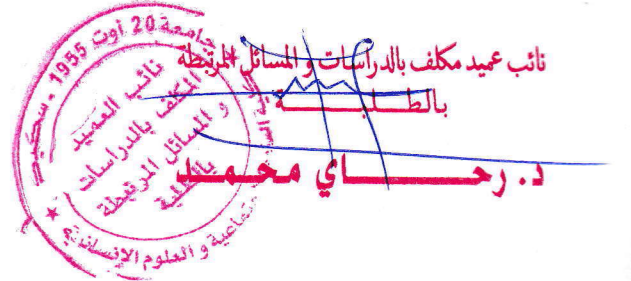 نائب عميد مكلف بالدراسات و المسائل المرتبطة
بالطلبة
د. رحاي محمد
جامعة 20 أوت 1955 - سكيكدة
نائب العميد
المكلف بالدراسات
و المسائل المرتبطة
بالطلبة
و العلوم الإنسانية